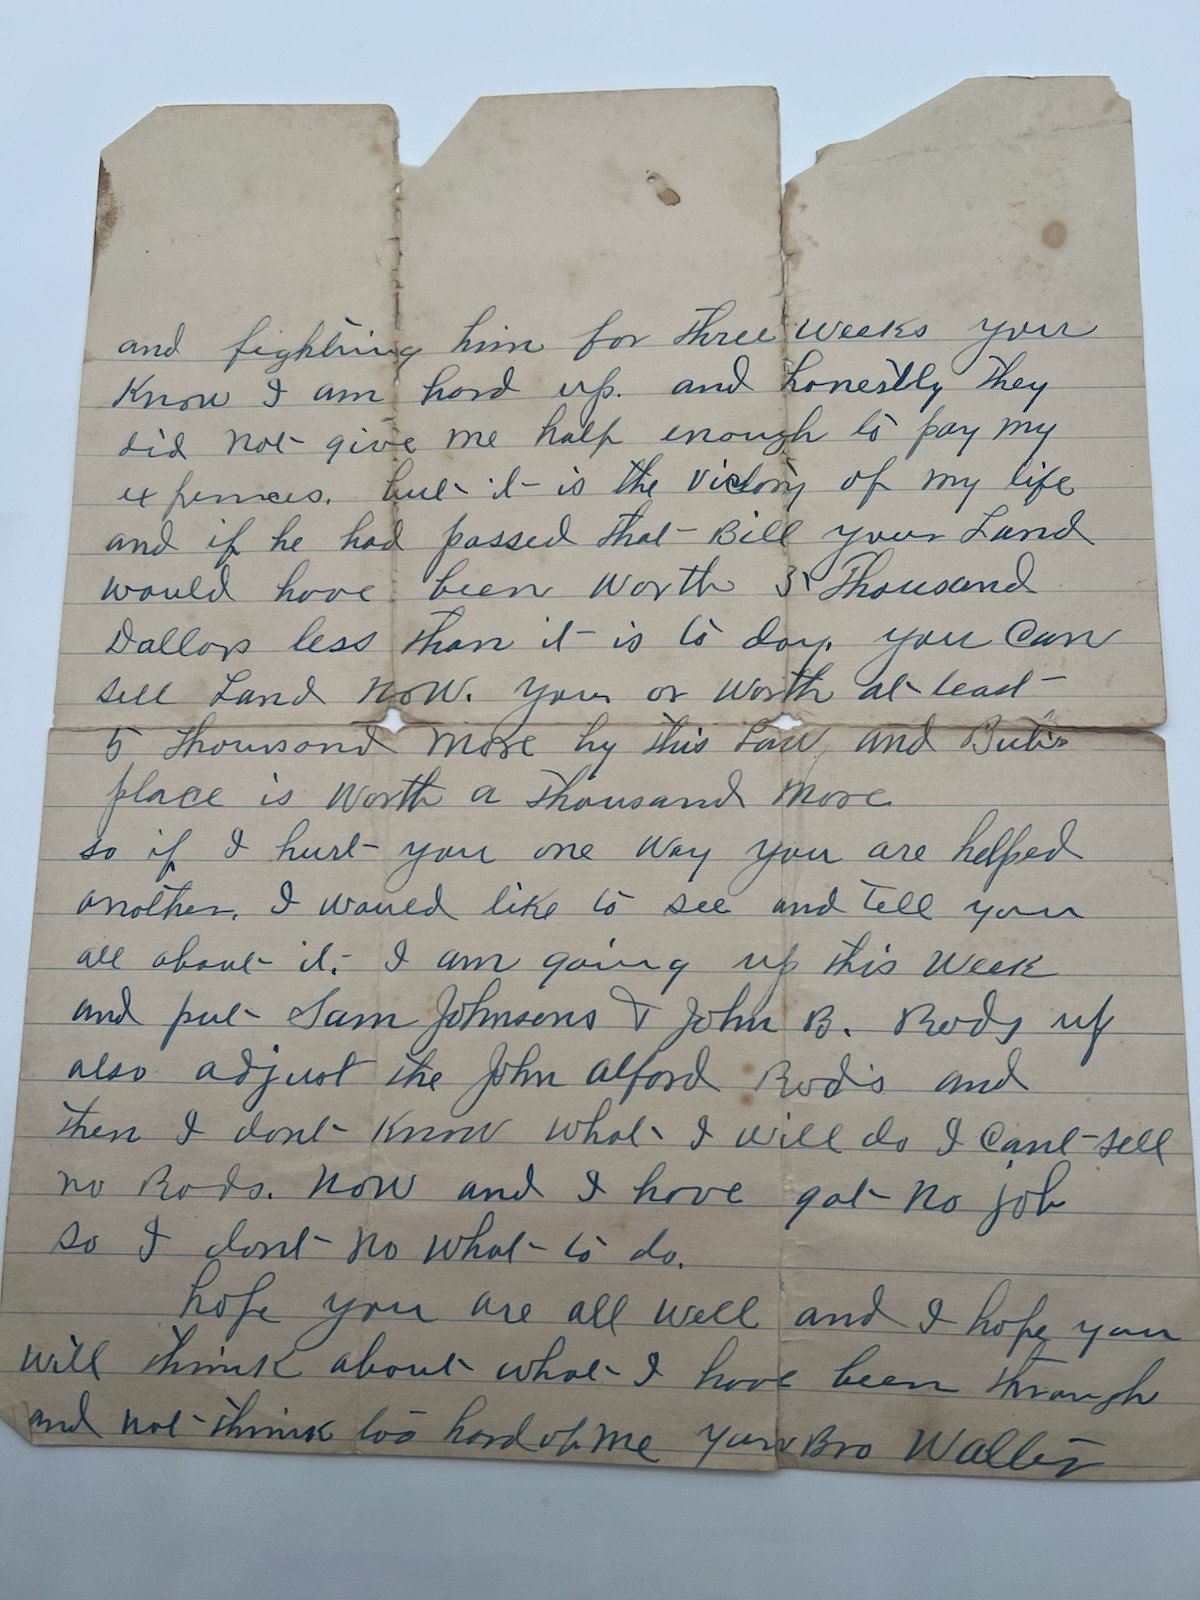 and fighting him for three weeks you
Know I am hard up. and honestly they
did not give me half enough to pay my
expences. but it is the victory of my life
and if he had passed that Bill your Land
would have been worth 5 Thousand
Dallors less than it is to day. you can
sell Land now. your or worth at least
5 thousand more by this Law, and
place is worth a thousand more
so if I hurt you one way you are helped
another. I would like to see and tell you
all about it. I am going up this week
and put Sam Johnsons & John B. Rods up
also adjust the John Alford Rods and
then I dont know what I will do I cant sell
no Rods. now and I have got no job
so I dont no what to do.
hope you are all well and I hope you
will think about what I have been through
and not think too hard of me your Bro Walter